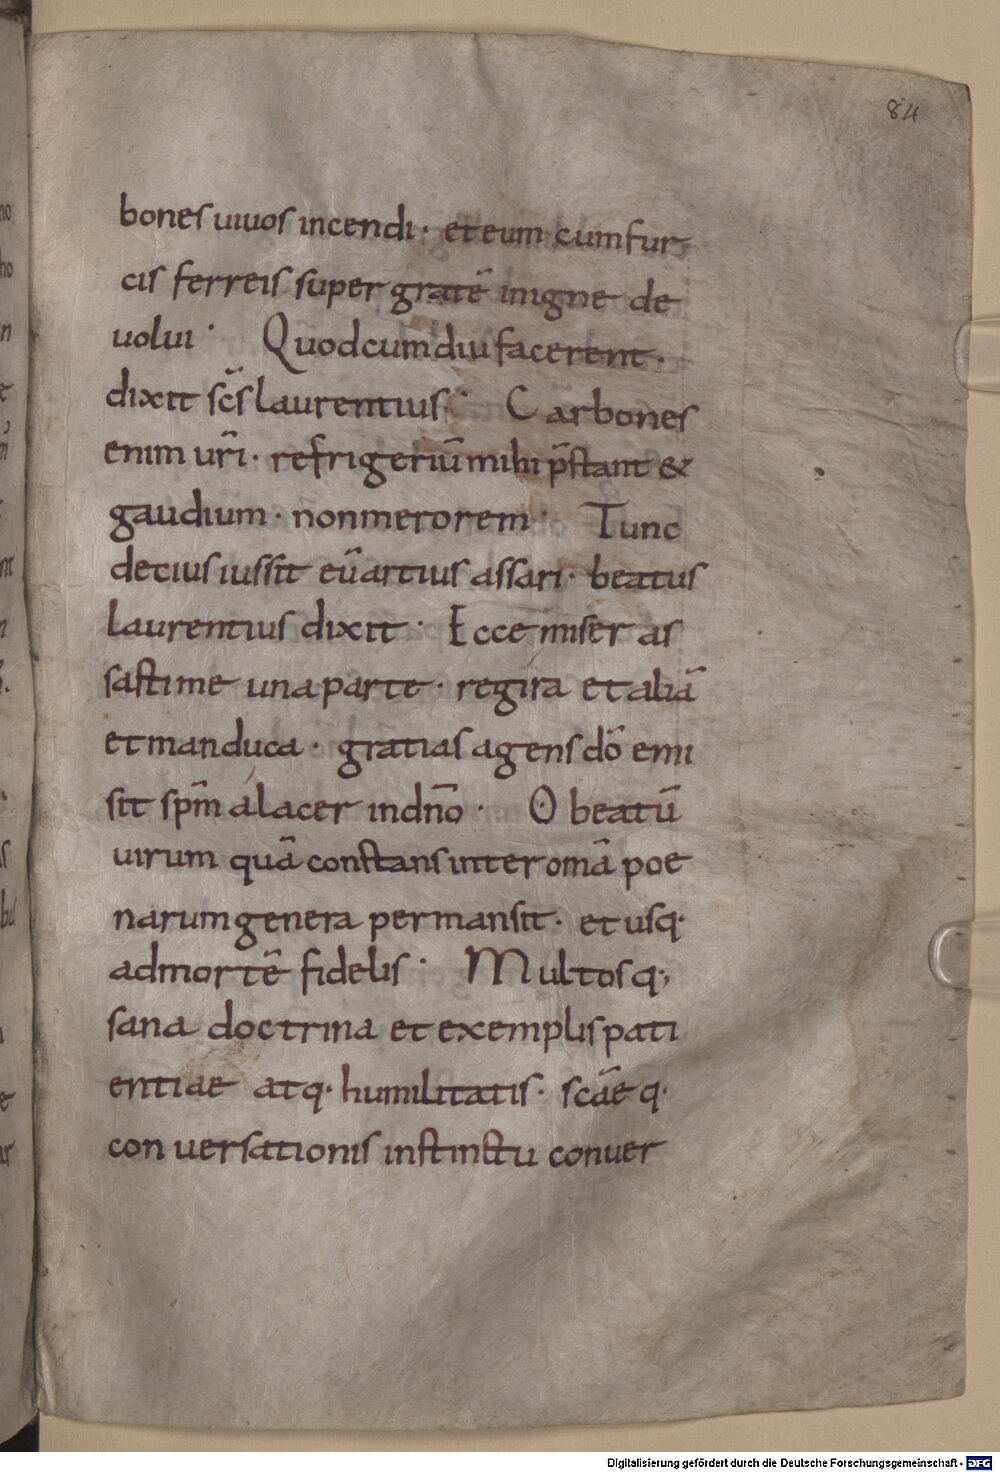 84
bones uiuos incendi· et eum cum fur
cis ferreis super gratē in igne de
uolui· Quod cum diu facerent·
dixit sc̄s laurentius· Carbones
enim ur̄i· refrigeriū mihi p̄stant &
gaudium· non merorem· Tunc
decius iussit eū artius assari· beatus
laurentius dixit· Ecce miser as
sasti me una parte· regira et aliā
et manduca· gratias agens dō emi
sit sp̄m alacer in dn̄o· O beatū
uirum quā constans inter omā poe
narum genera permansit· et usq·
ad mortē fidelis· Multosq;
sana doctrina et exemplis pati
entiae atq· humilitatis· scāe q·
conuersationis instinctu conuer
Digitalisierung gefördert durch die Deutsche Forschungsgemeinschaft - DFG